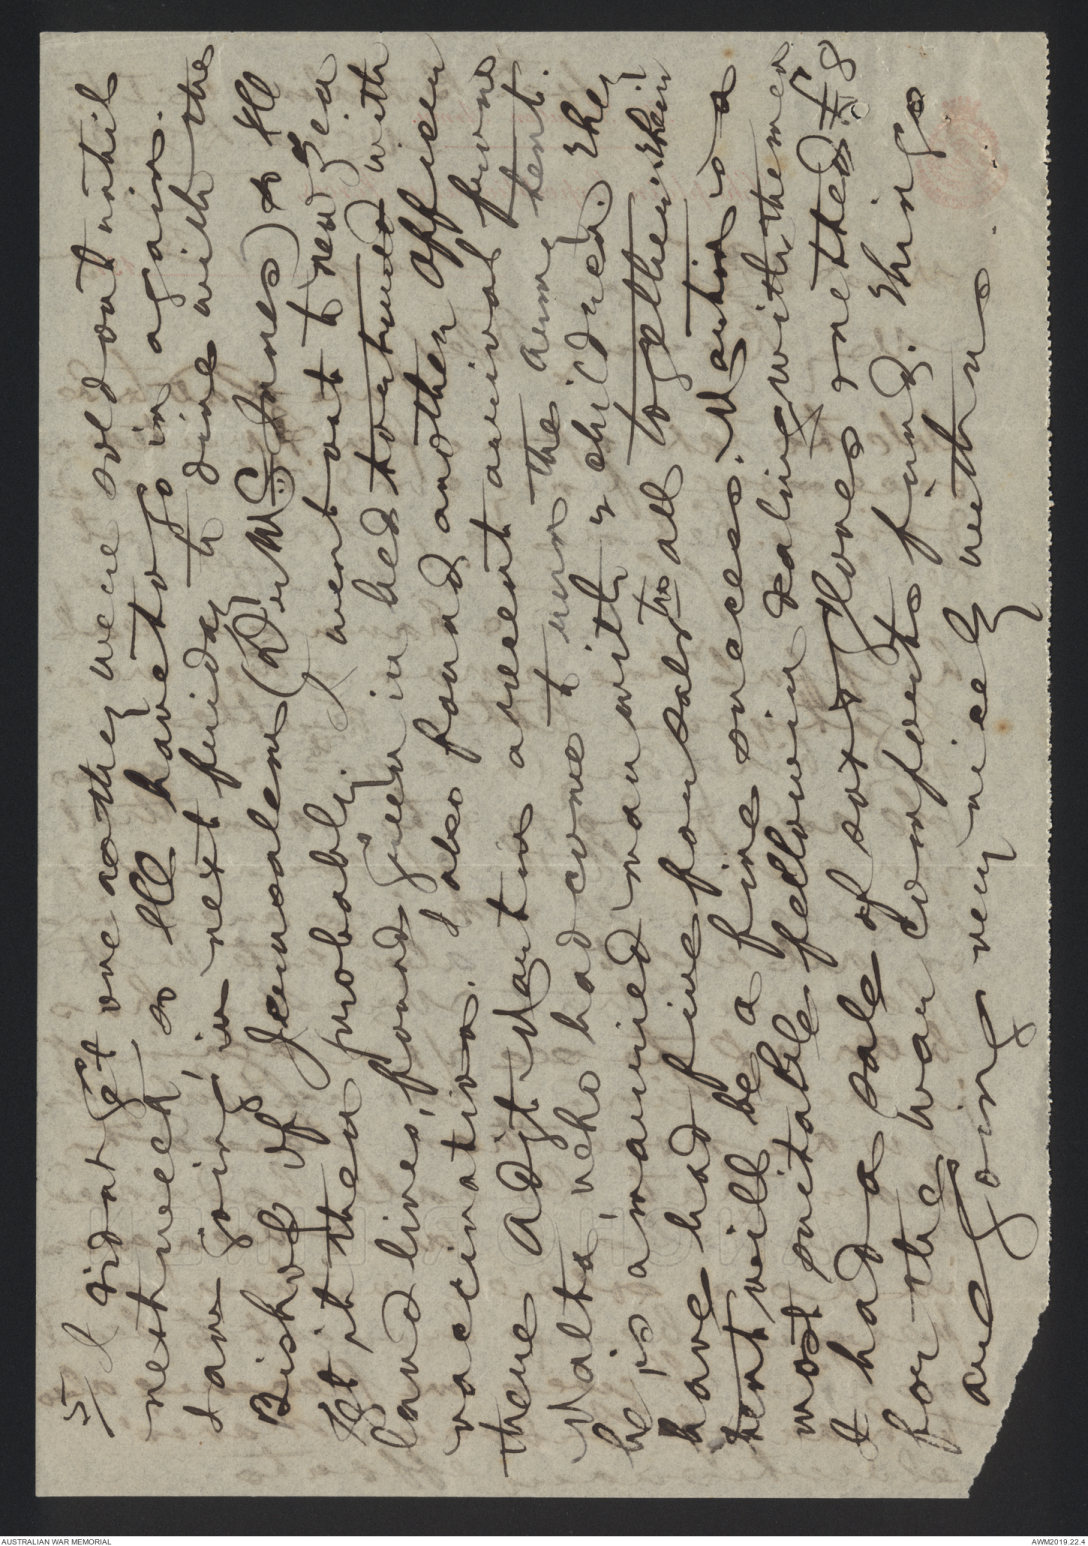 5/ I didnt get one as they were sold out until
next week so Ill have to go in again.
I am going in next friday to dine with the
Bishop of Jerusalem (Dr McInnes) so Ill
get it then probably. I went out to new Zea
land lines, found Green in bed tortured with
vaccination. I also found another officer
there Adjt Martin a recent arrival from
Malta who had come to run the army tent.
he is a married man with 4 children. They
have had five fonsals to all together & their
tent will be a fine success. Martin is a
most suitable fellow in dealing with the men
I had a sale of sox & gloves netted £78
for the war comforts fund. Things
are going very nicely with us
HERALD
AUSTRALIAN WAR MEMORIAL
AWM2019.22.4